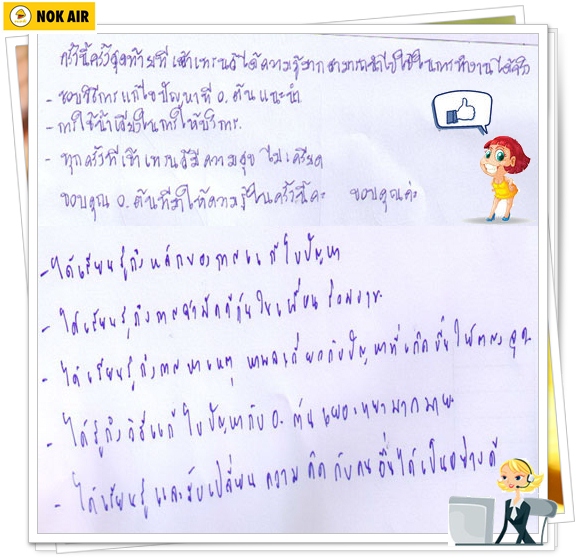 NOK AIR
ครั้งนี้ครั้งสุดท้ายที่เข้าเทรนได้ความรู้มากสามารถนำไปใช้ในการทำงานได้จริง
- ชอบวิธีการแก้ไขปัญหาที่ อ.ต้นแนะนำ
- การใช้น้ำเสียงในการให้บริการ.
- ทุกครั้งที่เข้าเทรนมีความสุข ไม่เครียด
ขอบคุณ อ.ต้นที่มาให้ความรู้ในครั้งนี้คะ ขอบคุณค่ะ
- ได้เรียนรู้ถึงหลักของการแก้ไขปัญหา
- ได้เรียนรู้ถึงการสามัคคีกันในเพื่อนร่วมงาน
- ได้เรียนรู้ถึงการหาเหตุ หาผลเกี่ยวกับปัญหาที่เกิดขึ้นให้ตรงจุด
- ได้รู้ถึงวิธีแก้ไขปัญหากับ อ. ต้น เยอะแยะมากมาย
- ได้เรียนรู้ แลกรับเปลี่ยน ความคิดกับคนอื่นได้เป็นอย่างดี